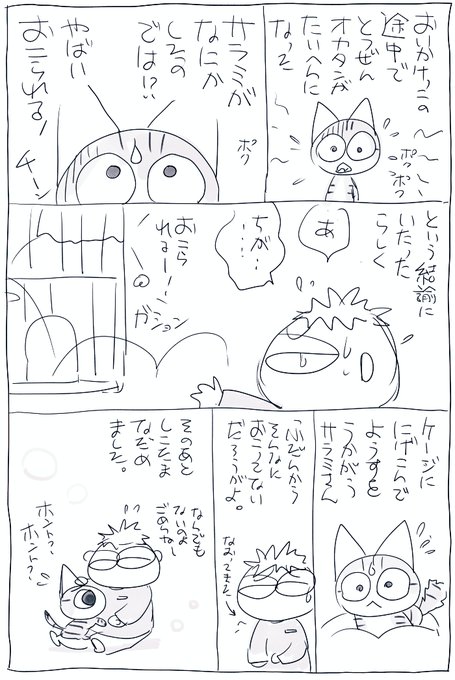 おいかけっこの
途中で
とつぜん
オカタンが
たいへんに
なった
ポク
ポク
サラミが
なにか
したの
では!?
やばい
おこられる!
ポク
チーン
という結論に
いたった
らしく
あ
ちが…
おこら
れるー!
ガション
ケージに
にげこんで
ようすを
うかがう
サラミさん
ふだんから
そんなに
おこってない
だろうがよ。
なおってきた
そのあと
しこたま
なだめ
ました。
なんでも
ないのよー
ごめんねー
ホント?
ホント?